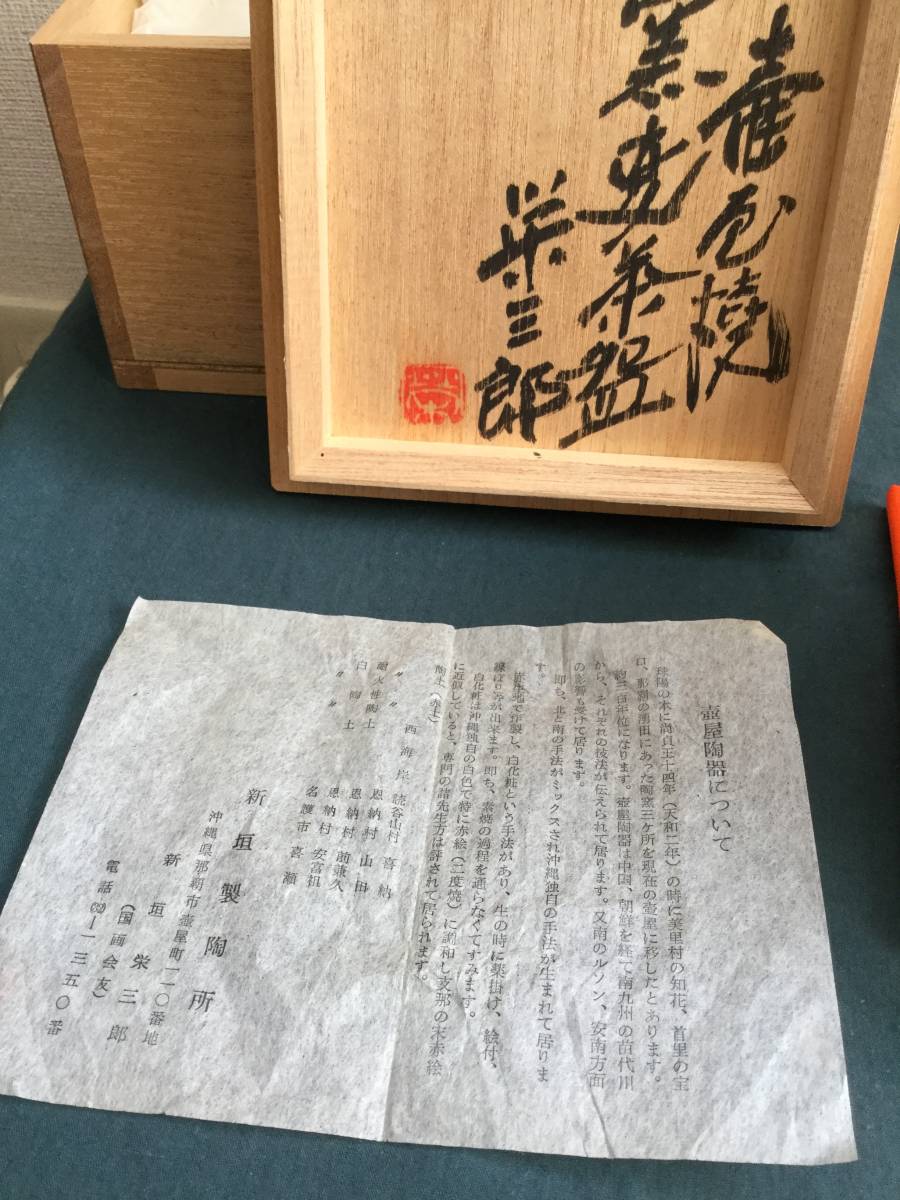 壷屋焼
窯変茶盌
栄三郎
栄
壺屋陶器について
球陽の本に尚貞王十四年（天和二年）の時に美里村の知花、首里の宝
口、那覇の湧田にあった陶窯三ヶ所を現在の壺屋に移したとあります。
約三百年位になります。壺屋陶器は中国、朝鮮を経て南九州の苗代川
から、それぞれの技法が伝えられて居ります。又南のルソン、安南方面
の影響も受けて居ります。
即ち、北と南の手法がミックスされ沖縄独自の手法が生まれて居りま
す。
赤生地で作製し、白化粧という手法があり、生の時に薬掛け、絵付、
線ぼり等が出来ます。即ち、素焼の過程を通らなくてすみます。
白化粧は沖縄独自の白色で特に赤絵（二度焼）に調和し支那の宋赤絵
に近似していると、専門の諸先生方は評されて居られます。
陶土（赤土）
〃 〃 西海岸 読谷山村 喜納
耐火性陶土 恩納村 山田
白陶土 恩納村 前兼久
〃 〃 恩納村 安富祖
名護市 喜瀬
新垣製陶所
沖縄県那覇市壺屋町一一〇番地
新垣栄三郎
（国画会友）
電話㉜－一三五〇番